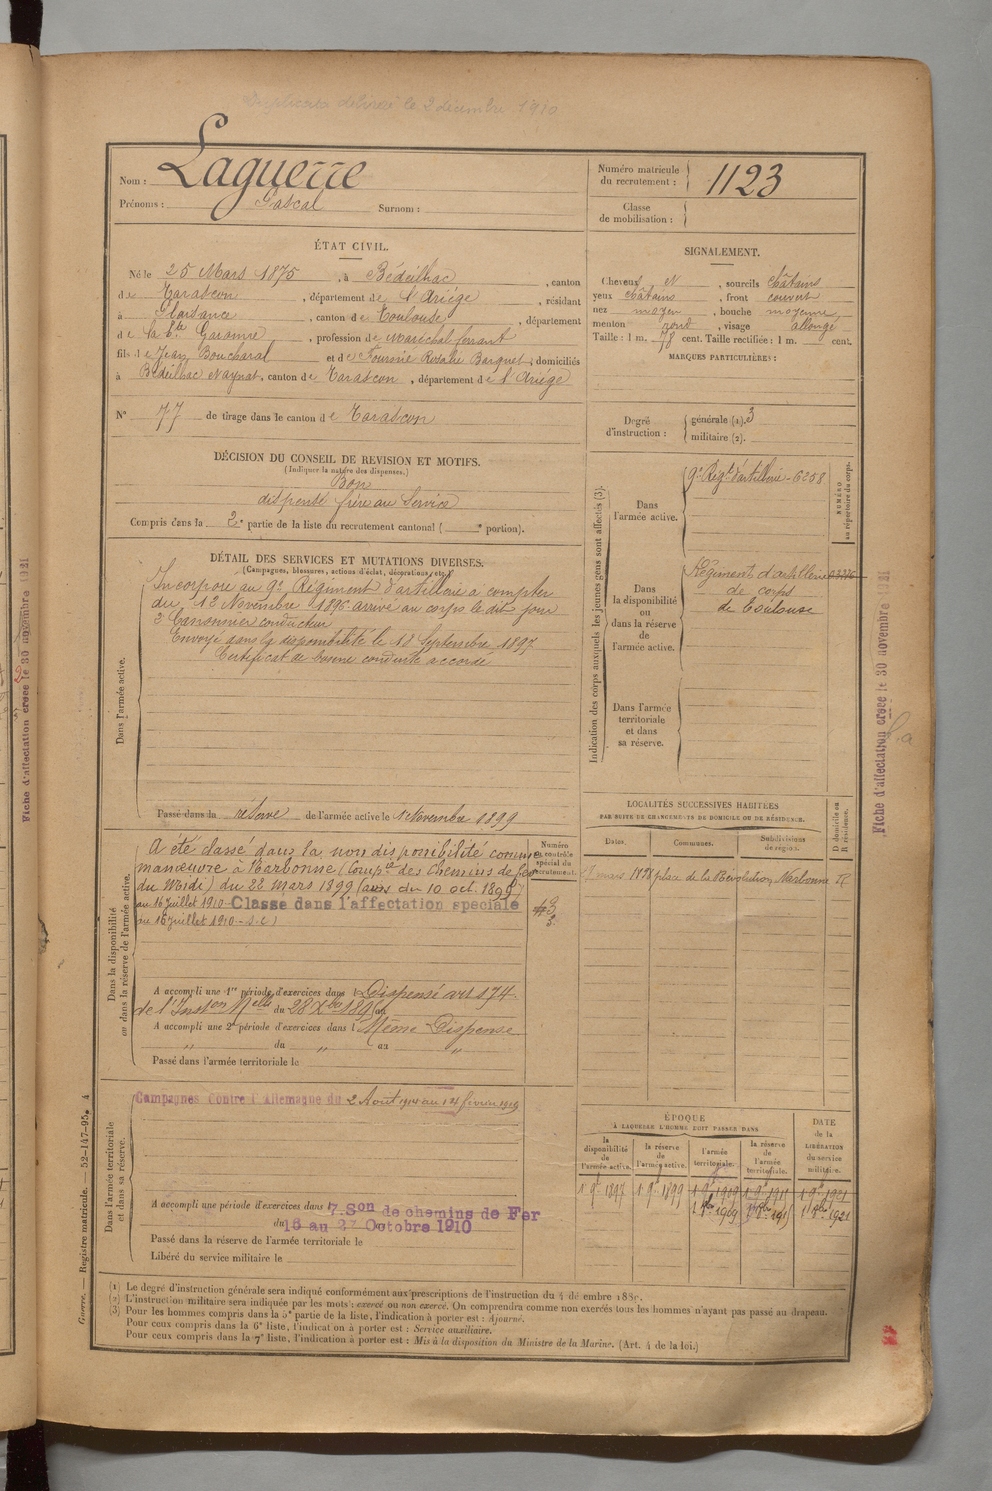 Duplicata délivré le 2 décembre 1910
Nom : Laguerre
Prénoms : Pascal Surnom :
Numéro matricule du recrutement : 1123
Classe de mobilisation :
ÉTAT CIVIL.
Né le 25 Mars 1875, à Bédeilhac, canton
de Tarascon, département de l'Ariège, résidant
à Plaisance, canton de Toulouse, département
de la Hte Garonne, profession de Maréchal ferrant
fils de Jean Boucharal et de Fournié Rosalie Barquet, domiciliés
à Bédeilhac Aynat, canton de Tarascon, département de l'Ariège
N° 77 de tirage dans le canton de Tarascon
SIGNALEMENT.
Cheveux N, sourcils châtains
yeux châtains, front couvert
nez moyen, bouche moyenne
menton rond, visage allongé
Taille : 1 m. 78 cent. Taille rectifiée : 1 m. cent.
MARQUES PARTICULIÈRES :
Degré d'instruction : générale (1). 3
militaire (2).
DÉCISION DU CONSEIL DE REVISION ET MOTIFS.
(Indiquer la nature des dispenses.)
Bon
dispensé frère au Service
Compris dans la 2e partie de la liste du recrutement cantonal ( e portion).
DÉTAIL DES SERVICES ET MUTATIONS DIVERSES.
(Campagnes, blessures, actions d'éclat, décorations, etc.)
Dans l'armée active.
Incorporé au 9e Régiment d'artillerie à compter
du 12 Novembre 1896 arrivé au corps le dit jour
2e Canonnier conducteur
Envoyé dans la disponibilité le 18 Septembre 1897
Certificat de bonne conduite accordé
Passé dans la réserve de l'armée active le 1 Novembre 1899
Indication des corps auxquels les jeunes gens sont affectés (3).
Dans l'armée active. 9e Régt d'artillerie - 6258
NUMÉRO au répertoire du corps.
Dans la disponibilité ou dans la réserve de l'armée active.
Régiment d'artillerie
de corps
de Toulouse
Dans l'armée territoriale et dans sa réserve.
Fiche d'affectation créée le 30 novembre 1921
Fiche d'affectation créée le 30 novembre 1921
LOCALITÉS SUCCESSIVES HABITÉES
PAR SUITE DE CHANGEMENTS DE DOMICILE OU DE RÉSIDENCE.
Dates. Communes. Subdivisions de région. D domicile ou R résidence.
mars 1898 place de la Révolution Narbonne R
Dans la disponibilité ou dans la réserve de l'armée active.
Numéro au contrôle spécial du recrutement.
A été classé dans la non disponibilité comme
manœuvre à Narbonne (Compie des Chemins de fer
du Midi) du 22 mars 1899 (avis du 10 oct. 1899)
au 16 Juillet 1910 - Classé dans l'affectation spéciale
au 16 Juillet 1910 - S.C.)
A accompli une 1re période d'exercices dans l Dispensé art 174
de l'Inston Melle du 28 Xbre 189 au
A accompli une 2e période d'exercices dans l Même Dispense
" du " au "
Passé dans l'armée territoriale le
Dans l'armée territoriale et dans sa réserve.
Campagnes Contre l'Allemagne du 2 Août 1914 au 14 février 1919
A accompli une période d'exercices dans l 7. Son de chemins de Fer
du 16 au 27 Octobre 1910
Passé dans la réserve de l'armée territoriale le
Libéré du service militaire le
ÉPOQUE
À LAQUELLE L'HOMME DOIT PASSER DANS
la disponibilité de l'armée active. la réserve de l'armée active. l'armée territoriale. la réserve de l'armée territoriale. DATE de la LIBÉRATION du service militaire.
1 9e 1897 1 9e 1899 1 9e 1909 1 9e 1915 1 9e 1921
1 Xbre 1909 1 Xbre 1915 1 Xbre 1921
Guerre. — Registre matricule. — 52-147-95. 4
(1) Le degré d'instruction générale sera indiqué conformément aux prescriptions de l'instruction du 4 décembre 1889.
(2) L'instruction militaire sera indiquée par les mots : exercé ou non exercé. On comprendra comme non exercés tous les hommes n'ayant pas passé au drapeau.
(3) Pour les hommes compris dans la 5e partie de la liste, l'indication à porter est : Ajourné.
Pour ceux compris dans la 6e liste, l'indication à porter est : Service auxiliaire.
Pour ceux compris dans la 7e liste, l'indication à porter est : Mis à la disposition du Ministre de la Marine. (Art. 4 de la loi.)